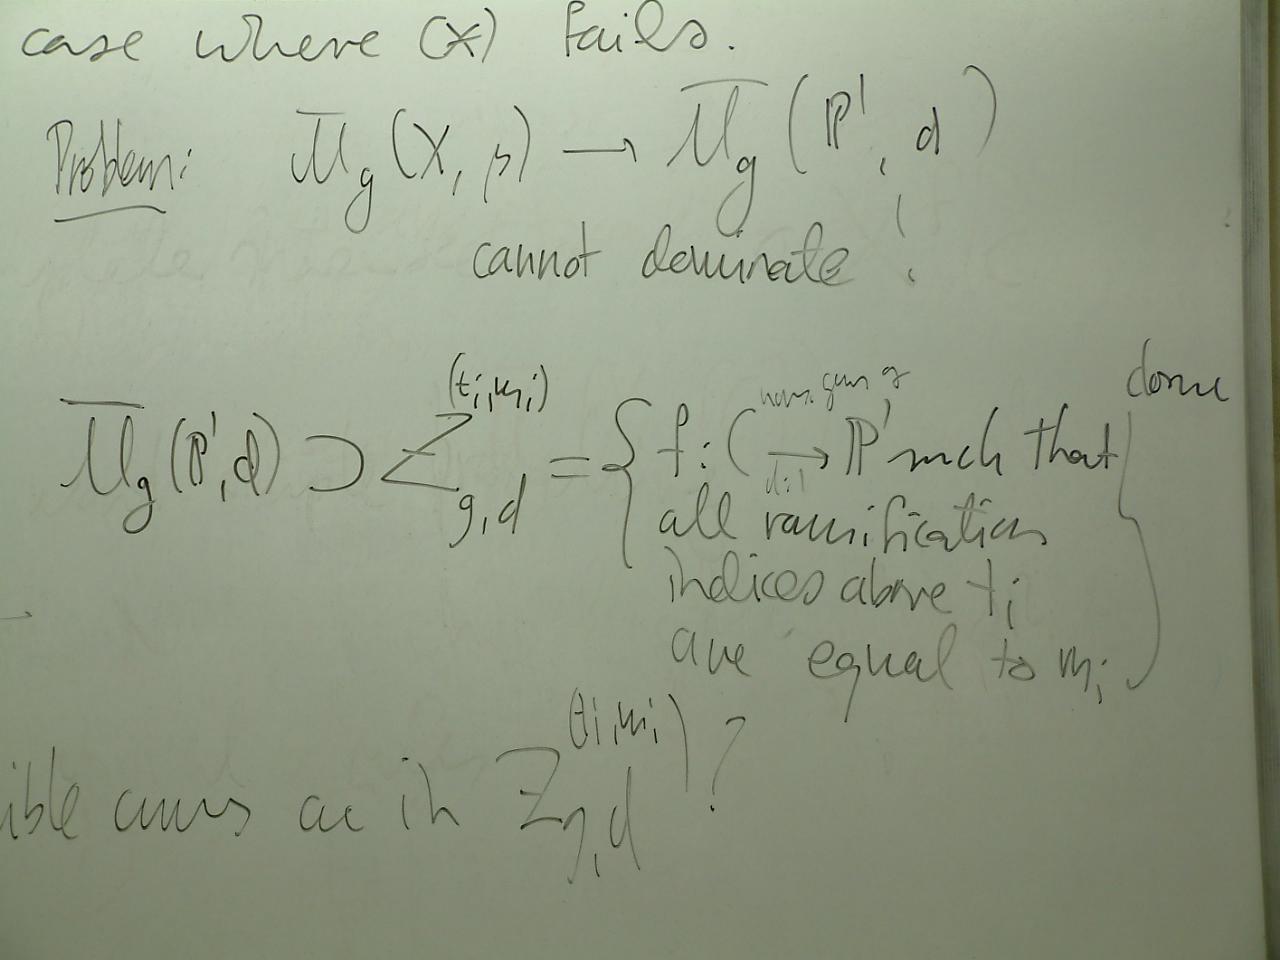 case where (x) fails.
Problem: M̄_g (X, β) → M̄_g (ℙ¹, d)
cannot dominate !
M̄_g (ℙ¹, d) ⊃ Z_{g,d}^{(t_i, m_i)} = { f: C → ℙ¹ such that
all ramification
indices above t_i
are equal to m_i }
ible curves are in Z_{g,d}^{(t_i, m_i)} ?